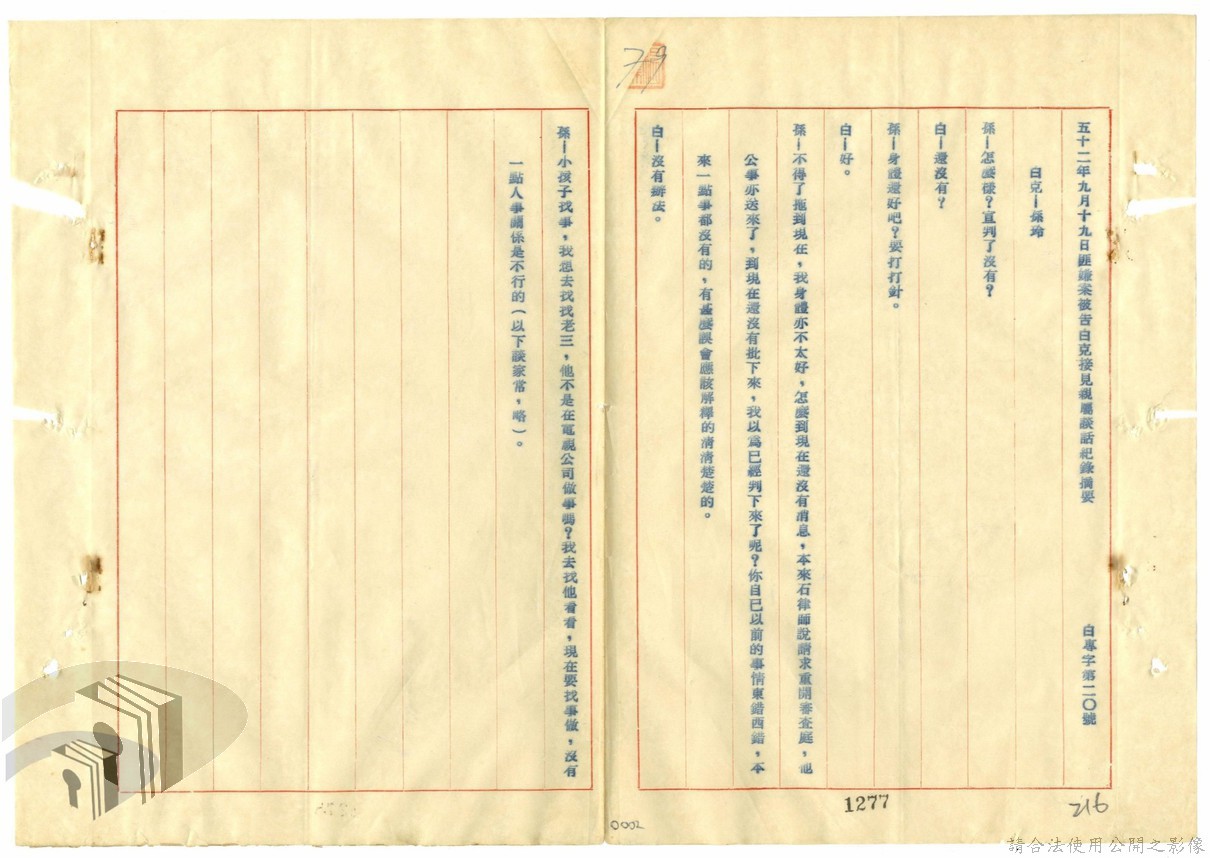 79
五十二年九月十九日匪嫌案被告白克接見親屬談話紀錄摘要
白專字第二〇號
白克—孫玲
孫—怎麼樣?宣判了沒有?
白—還沒有?
孫—身體還好吧?要打打針。
白—好。
孫—不得了拖到現在,我身體亦不太好,怎麼到現在還沒有消息,本來石律師說請求重開審查庭,他
公事亦送來了,到現在還沒有批下來,我以為已經判下來了呢?你自己以前的事情東錯西錯,本
來一點事都沒有的,有甚麼誤會應該解釋的清清楚楚的。
白—沒有辦法。
孫—小孩子找事,我想去找找老三,他不是在電視公司做事嗎?我去找他看看,現在要找事做,沒有
一點人事關係是不行的(以下談家常,略)。
1277
216
0002
請合法使用公開之影像